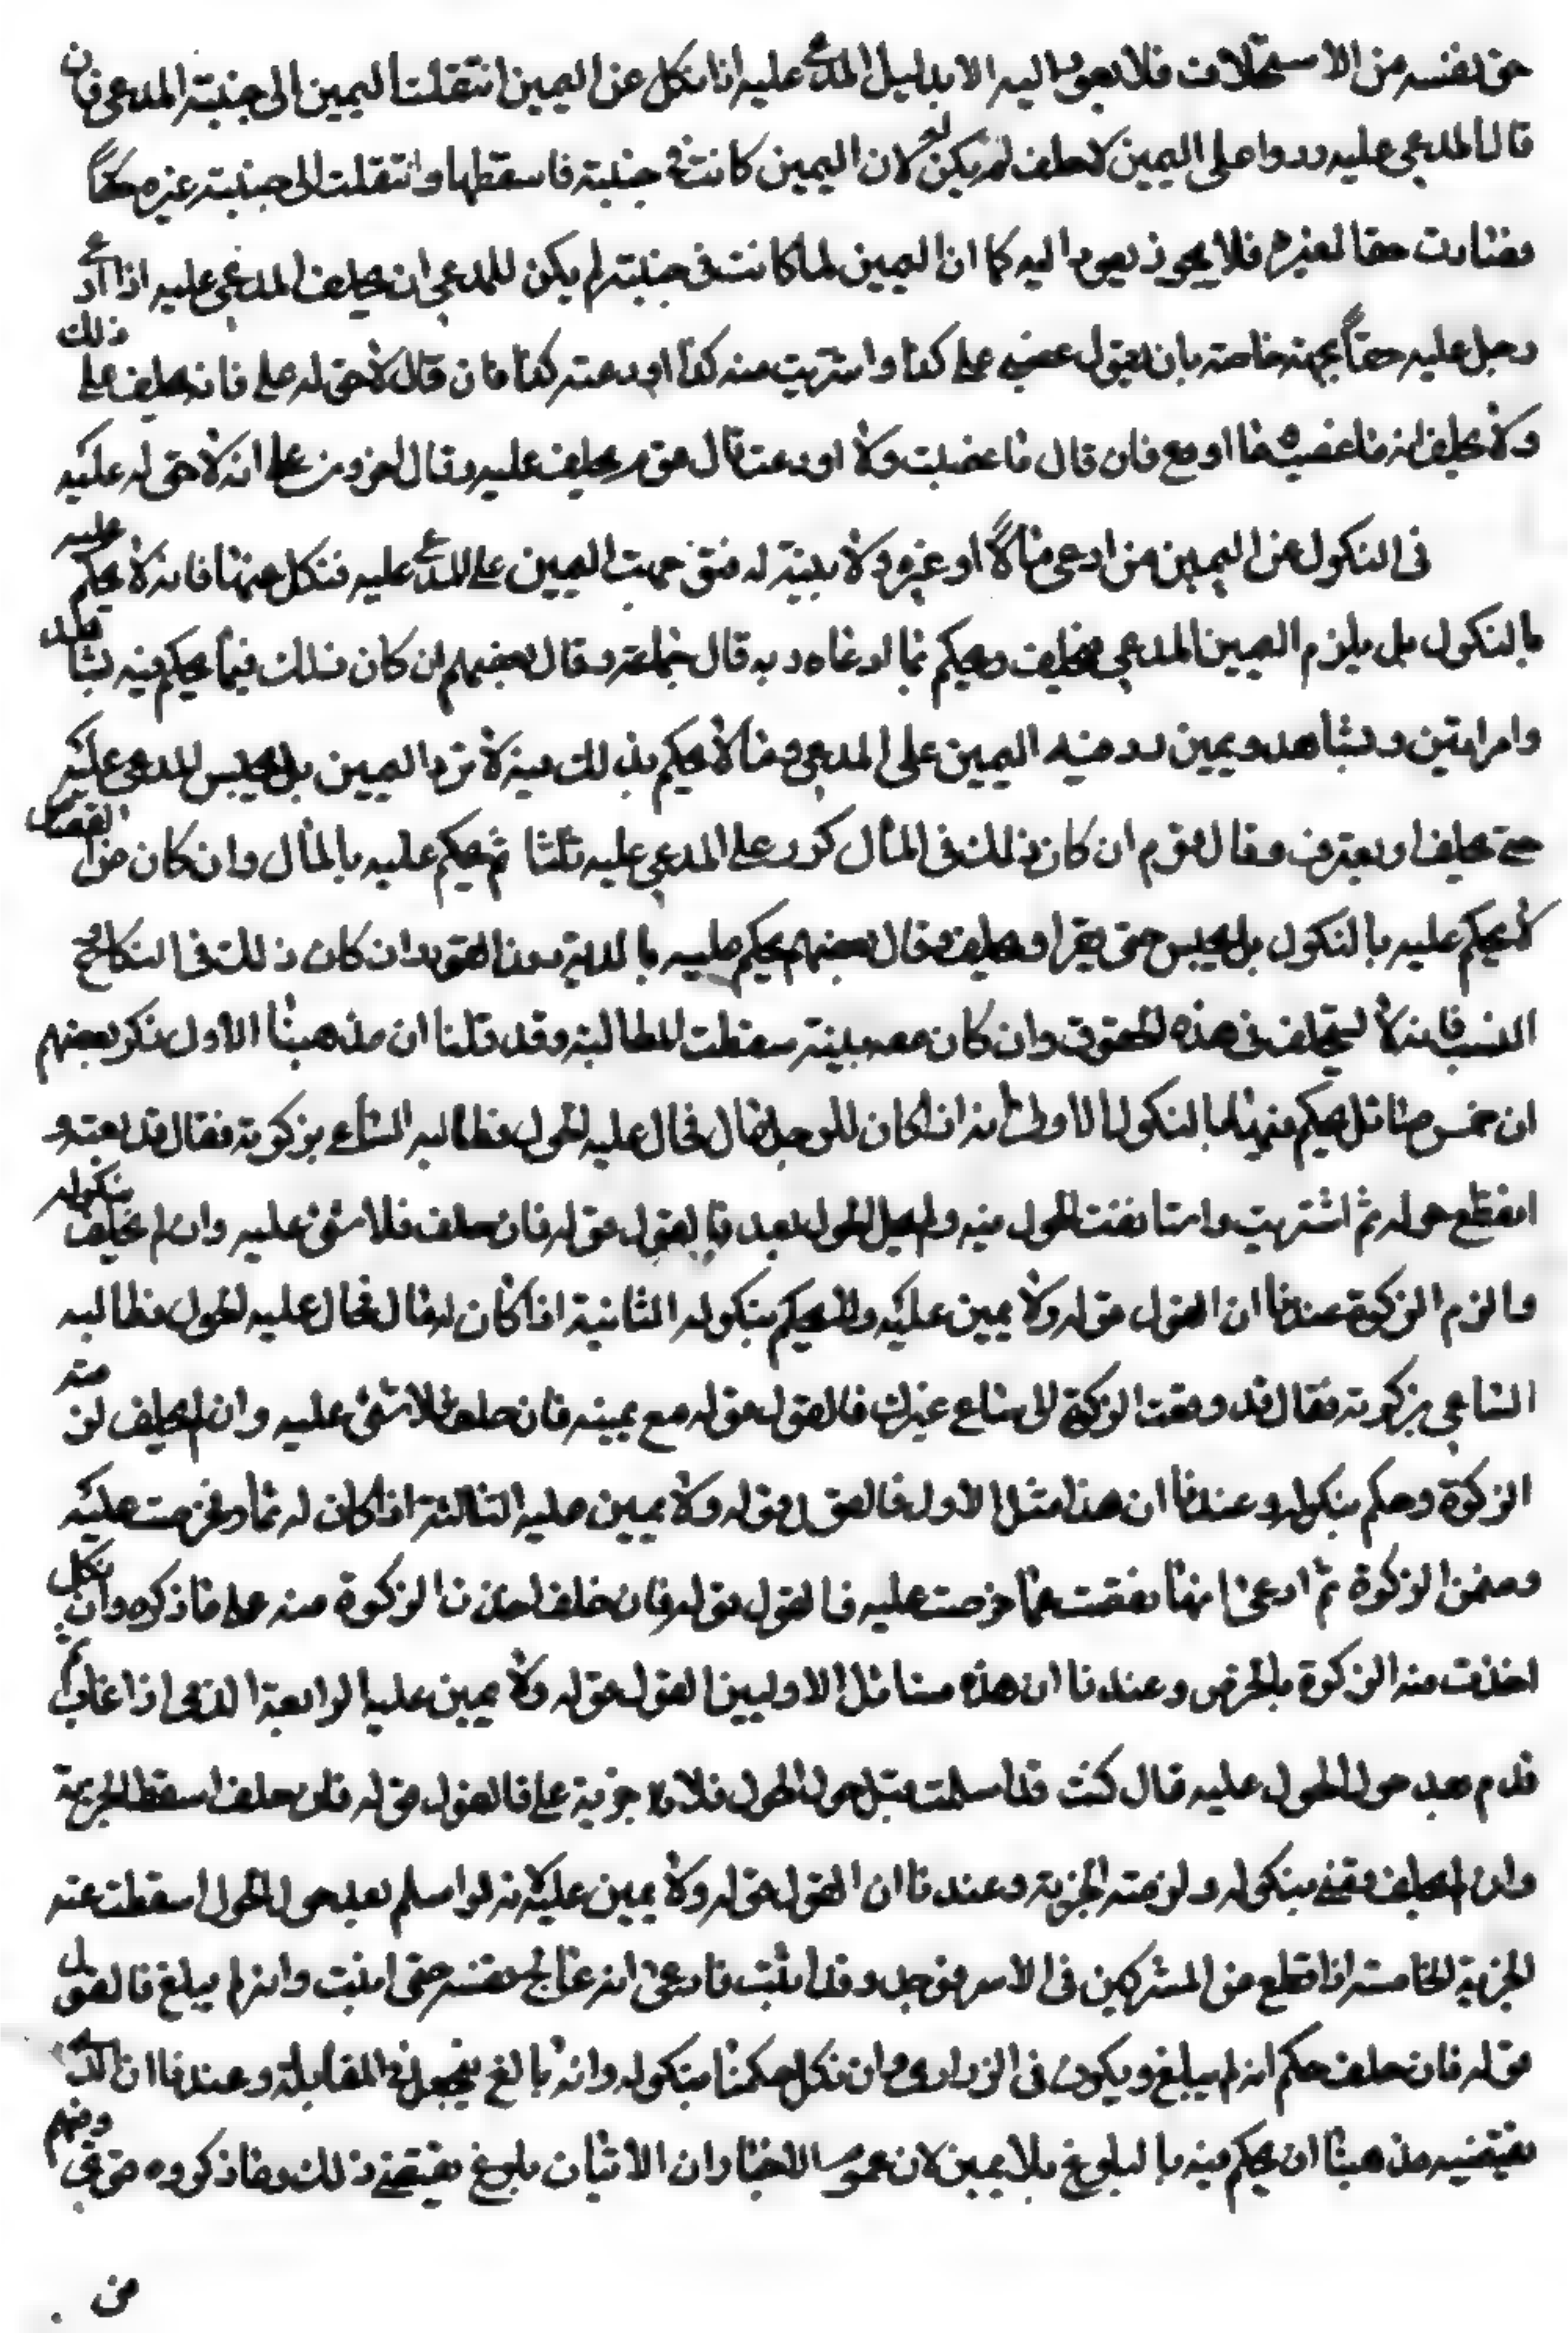 حق نفسه من الاستحلاف فلا يعود اليه الا بدليل المدعى عليه اذا نكل عن اليمين انتقلت اليمين الى جنبة المدعي فان
قال المدعي عليه ردوا على اليمين لاحلف لم يكن له لان اليمين كانت في جنبته فاسقطها وانتقلت الى جنبته غيره حقاً
فصارت حقا لغيره فلا يجوز يعود اليه كما ان اليمين لما كانت في جنبته لم يكن للمدعي ان يحلف المدعي عليه اذا ادعى
رجل عليه حقاً بجهة خاصة بان يقول غصبني على كذا واشتريت منه كذا اودعته كذا فان قال لا حق له على فانه يحلف على ذلك
ولا يحلف انه ما غصب منا اودع فان قال ما غصبت ولا اودعت قال قوم يحلف عليه وقال اخرون على انه لا حق له عليه
في النكول عن اليمين من ادعى مالاً او غيره ولا بينة له فتوجهت اليمين على المدعى عليه فنكل عنها فانه لا يحكم عليه
بالنكول بل يلزم اليمين المدعي فيحلف ويحكم بما ادعاه وبه قال جماعة وقال بعضهم ان كان ذلك فيما يحكم فيه بشاهد
وامراتين وبشاهد ويمين رد فيه اليمين على المدعي وما لا يحكم بذلك فيه لا ترد اليمين بل يحبس المدعى عليه
حتى يحلف او يعترف وقال قوم ان كان ذلك في المال كرر على المدعي عليه ثلثا ثم يحكم عليه بالمال وان كان من القصاص
لا يحكم عليه بالنكول بل يحبس حتى يقر او يحلف وقال بعضهم يحكم عليه بالدية دون القود وان كان ذلك في النكاح
النسب فانه لا يستحلف في هذه الحقوق وان كان معه بينة سقطت المطالبة وقد قلنا ان مذهبنا الاول ذكر بعضهم
ان خمس مسائل يحكم فيها بالنكول الاولى انه اذا كان للرجل مال فحال عليه الحول فطالبه الساعي بزكوته فقال قد بعته و
انقطع حوله ثم اشتريت واستانفت الحول منه ولم يحل الحول بعد فالقول قوله فان حلف فلا شئ عليه وان لم يحلف بنكوله
والزم الزكوة عندنا ان القول قوله ولا يمين عليه ولا يحكم بنكوله الثانية اذا كان له مال فحال عليه الحول فطالبه
الساعي بزكوته فقال قد دفعت الزكوة الى ساع غيرك فالقول قوله مع يمينه فان حلف فلا شئ عليه وان لم يحلف لزمته
الزكوة وحكم بنكوله وعندنا ان هذا مثل الاول فالقول قوله ولا يمين عليه الثالثة اذا كان له ثمار فخرصت عليه
وضمن الزكوة ثم ادعى انها نقصت عما خرصت عليه فالقول قوله فان حلف اخذنا الزكوة منه على ما ذكره وان نكل
اخذت منه الزكوة بالخرص وعندنا ان هذه مسائل الاوليين القول قوله ولا يمين عليه الرابعة الذمي اذا غاب ثم
قدم بعد حول الحول عليه قال كنت قد اسلمت قبل حول الحول فلا جزية على فالقول قوله فان حلف اسقط الجزية
وان لم يحلف قضى بنكوله ولزمته الجزية وعندنا ان القول قوله ولا يمين عليه لانه لو اسلم بعد حول الحول اسقطت عنه
الجزية الخامسة اذا قطع من المشركين في الاسر فوجد وقد انبت فادعى انه عالج نفسه حتى انبت وانه لم يبلغ فالقول
قوله فان حلف حكم انه لم يبلغ ويكون في الزراري وان نكل حكمنا بنكوله وانه بالغ فيجعل في المقابلة وعندنا ان الذي
يقتضيه مذهبنا ان يحكم فيه بالبلوغ بلا يمين لان عموم الاخبار ان الانبات بلوغ يقتضي ذلك وما ذكروه قوي ومنهم
من